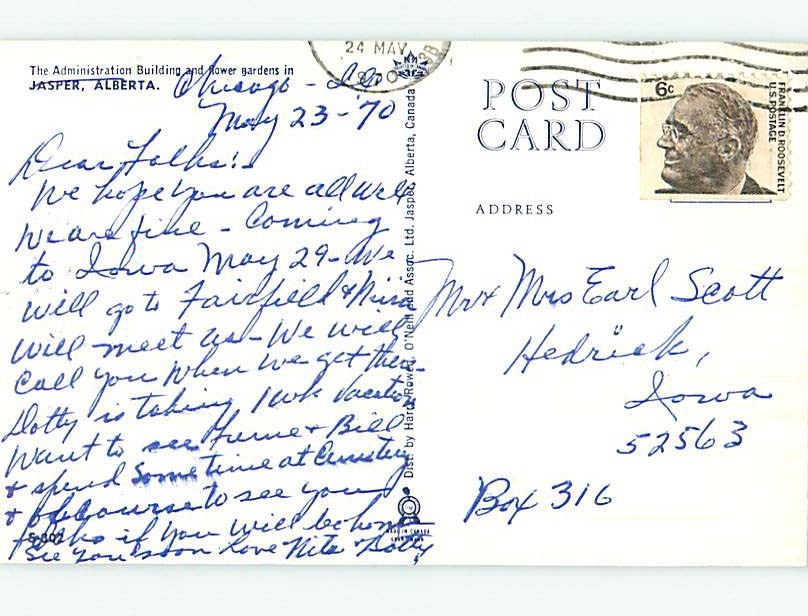 24 MAY
1970
The Administration Building and flower gardens in
JASPER, ALBERTA.
Chicago - Ill
May 23-'70
Dear Folks:-
We hope you are all well
We are fine - Coming
to Iowa May 29 - We
will go to Fairfield & Nina
will meet us - We will
Call you when we get there-
Dotty is taking 1 wk Vacation
Want to see Ferne + Bill
+ spend Some time at Cemetery
+ of course to see you
folks if you will be home
See you soon Love Nita & Dotty
S-902
Dist. by Harry Rowed, O'Neill and Assoc. Ltd. Jasper, Alberta, Canada
MADE IN CANADA
POST
CARD
ADDRESS
6c
FRANKLIN D. ROOSEVELT
U.S. POSTAGE
Mr & Mrs Earl Scott
Hedrick,
Iowa
52563
Box 316